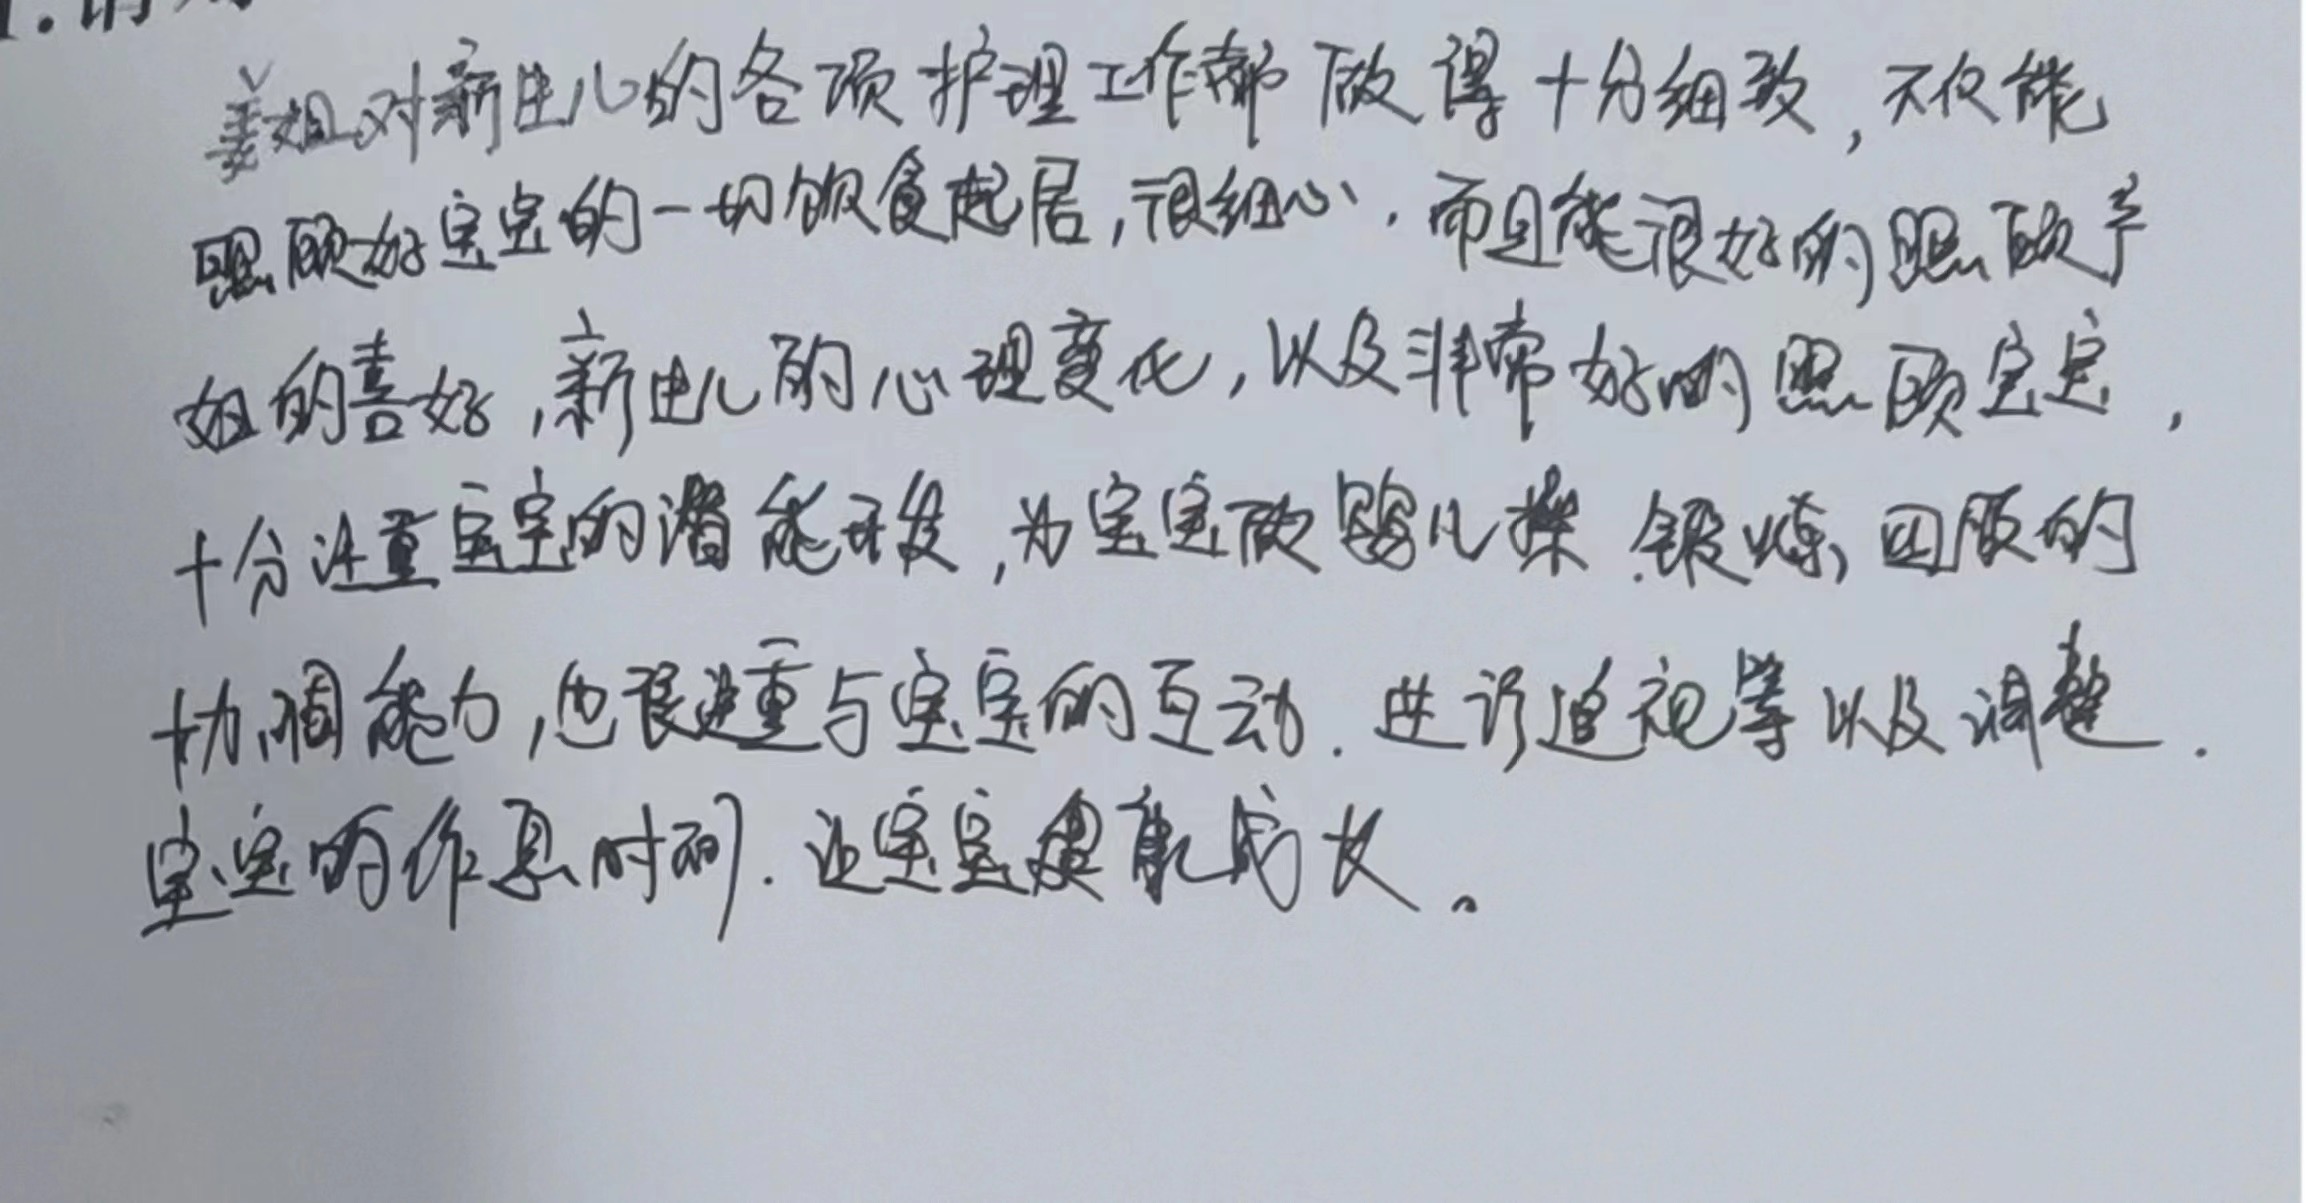 姜姐对新生儿的各项护理工作都做得十分细致,不仅能
照顾好宝宝的一切饮食起居,很细心,而且能很好的照顾产
妇的喜好,新生儿的心理变化,以及非常好的照顾宝宝,
十分注重宝宝的潜能开发,为宝宝做婴儿操.锻炼,四肢的
协调能力,也很注重与宝宝的互动.进行追视等以及调整.
宝宝的作息时间.让宝宝健康成长。